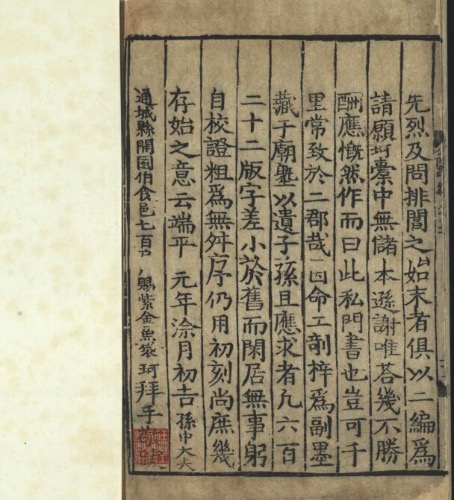 先烈及問排閶之始末者俱以二編爲
請願珂橐中無儲本遜謝唯荅幾不勝
酬應慨然作而曰此私門書也豈可千
里常致於二郡哉因命工剞梓爲副墨
藏于廟塾以遺子孫且應求者凡六百
二十二版字差小於舊而閑居無事躬
自校證粗爲無舛序仍用初刻尚庶幾
存始之意云端平 元年涂月初吉孫中大夫
通城縣開國伯食邑七百戶 賜紫金魚袋珂拜手